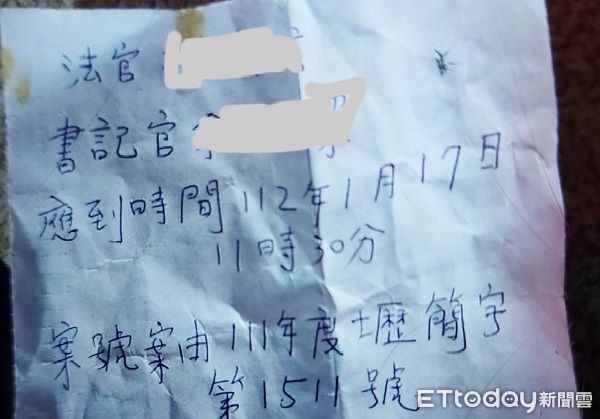 法官
書記官
應到時間112年1月17日
11時30分
案號案由111年度壢簡字
第1511號
ETtoday新聞雲